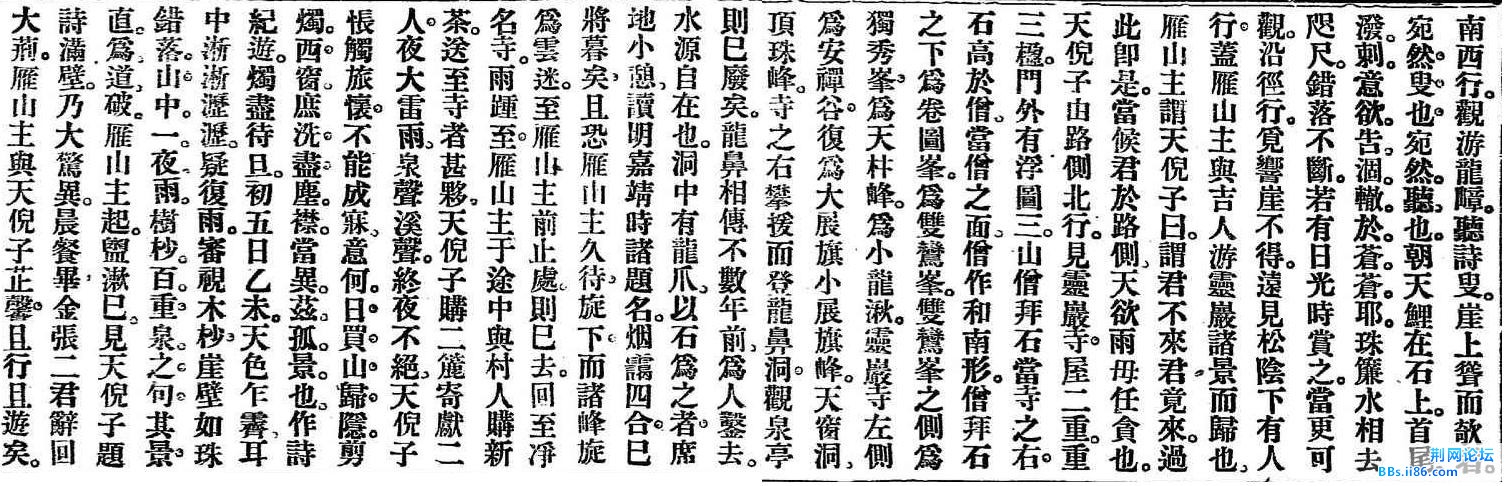 南西行。觀游龍嶂。聽詩叟。崖上聳而欹者。
宛然叟也。宛然聽也。朝天鯉在石上。首尾
潑剌。意欲告涸轍於蒼蒼耶。珠簾水相去
咫尺。錯落不斷。若有日光時賞之。當更可
觀。沿徑行。覓響崖不得。遠見松陰下有人
行。蓋雁山主與吉人游靈巖諸景而歸也。
雁山主謂天倪子曰。謂君不來。君竟來。過
此卽是。當候君於路側。天欲雨毋任貪也。
天倪子由路側北行。見靈巖寺。屋二重。重
三楹。門外有浮圖三。山僧拜石當寺之右。
石高於僧。當僧之面。僧作和南形。僧拜石
之下爲卷圖峯。爲雙鸞峯。雙鸞峯之側爲
獨秀峯。爲天柱峰。爲小龍湫。靈巖寺左側
爲安禪谷。復爲大展旗小展旗峰。天窗洞、
頂珠峰。寺之右攀援而登龍鼻洞。觀泉亭
則已廢矣。龍鼻相傳不數年前、爲人鑿去。
水源自在也。洞中有龍爪、以石爲之者。席
地小憩、讀明嘉靖時諸題名。烟靄四合。已
將暮矣、且恐雁山主久待、旋下。而諸峰旋
爲雲迷。至雁山主前止處、則已去。回至凈
名寺。雨踵至。雁山主于途中與村人購新
茶。送至寺者甚夥。天倪子購二簏寄獻二
人。夜大雷雨、泉聲溪聲。終夜不絕、天倪子
悵觸旅懷。不能成寐、意何日買山歸隱。剪
燭西窗。庶洗盡塵襟。當異茲孤景也、作詩
紀遊。燭盡待旦。初五日乙未。天色乍霽、耳
中漸漸瀝瀝。疑復雨。審視木杪、崖壁如珠
錯落。山中一夜雨。樹杪百重泉之句。其景
直爲道破。雁山主起。盥漱已。見天倪子題
詩滿壁。乃大驚異。晨餐畢、金張二君辭回
大荊。雁山主與天倪子芷馨。且行且遊矣。
荆网论坛
BBs.ii86.com